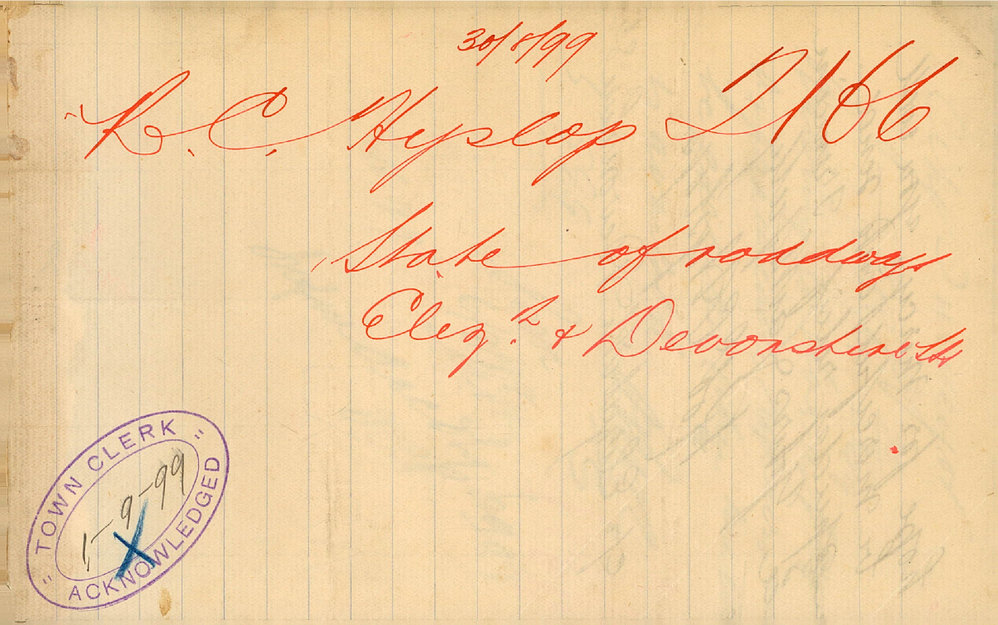 30/8/99
R. C. Hyslop 2166
State of roadways
Elizth & Devonshire Sts
TOWN CLERK
1-9-99
ACKNOWLEDGED